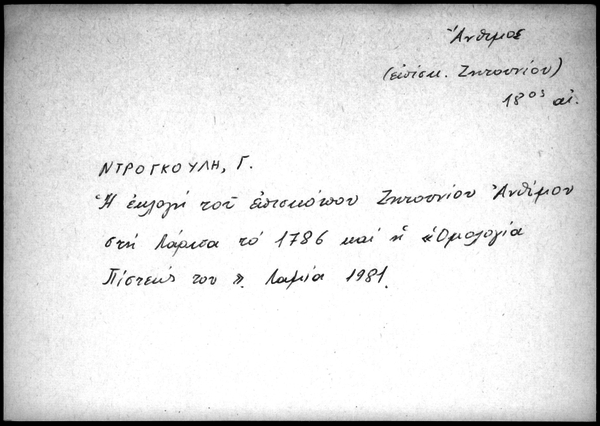 Ἄνθιμος
(ἐπίσκ. Ζητουνίου)
18ος αἰ.
ΝΤΡΟΓΚΟΥΛΗ, Γ.
Ἡ ἐκλογή τοῦ ἐπισκόπου Ζητουνίου Ἀνθίμου
στή Λάρισα τό 1786 καί ἡ «Ὁμολογία
Πίστεώς του». Λαμία 1981.